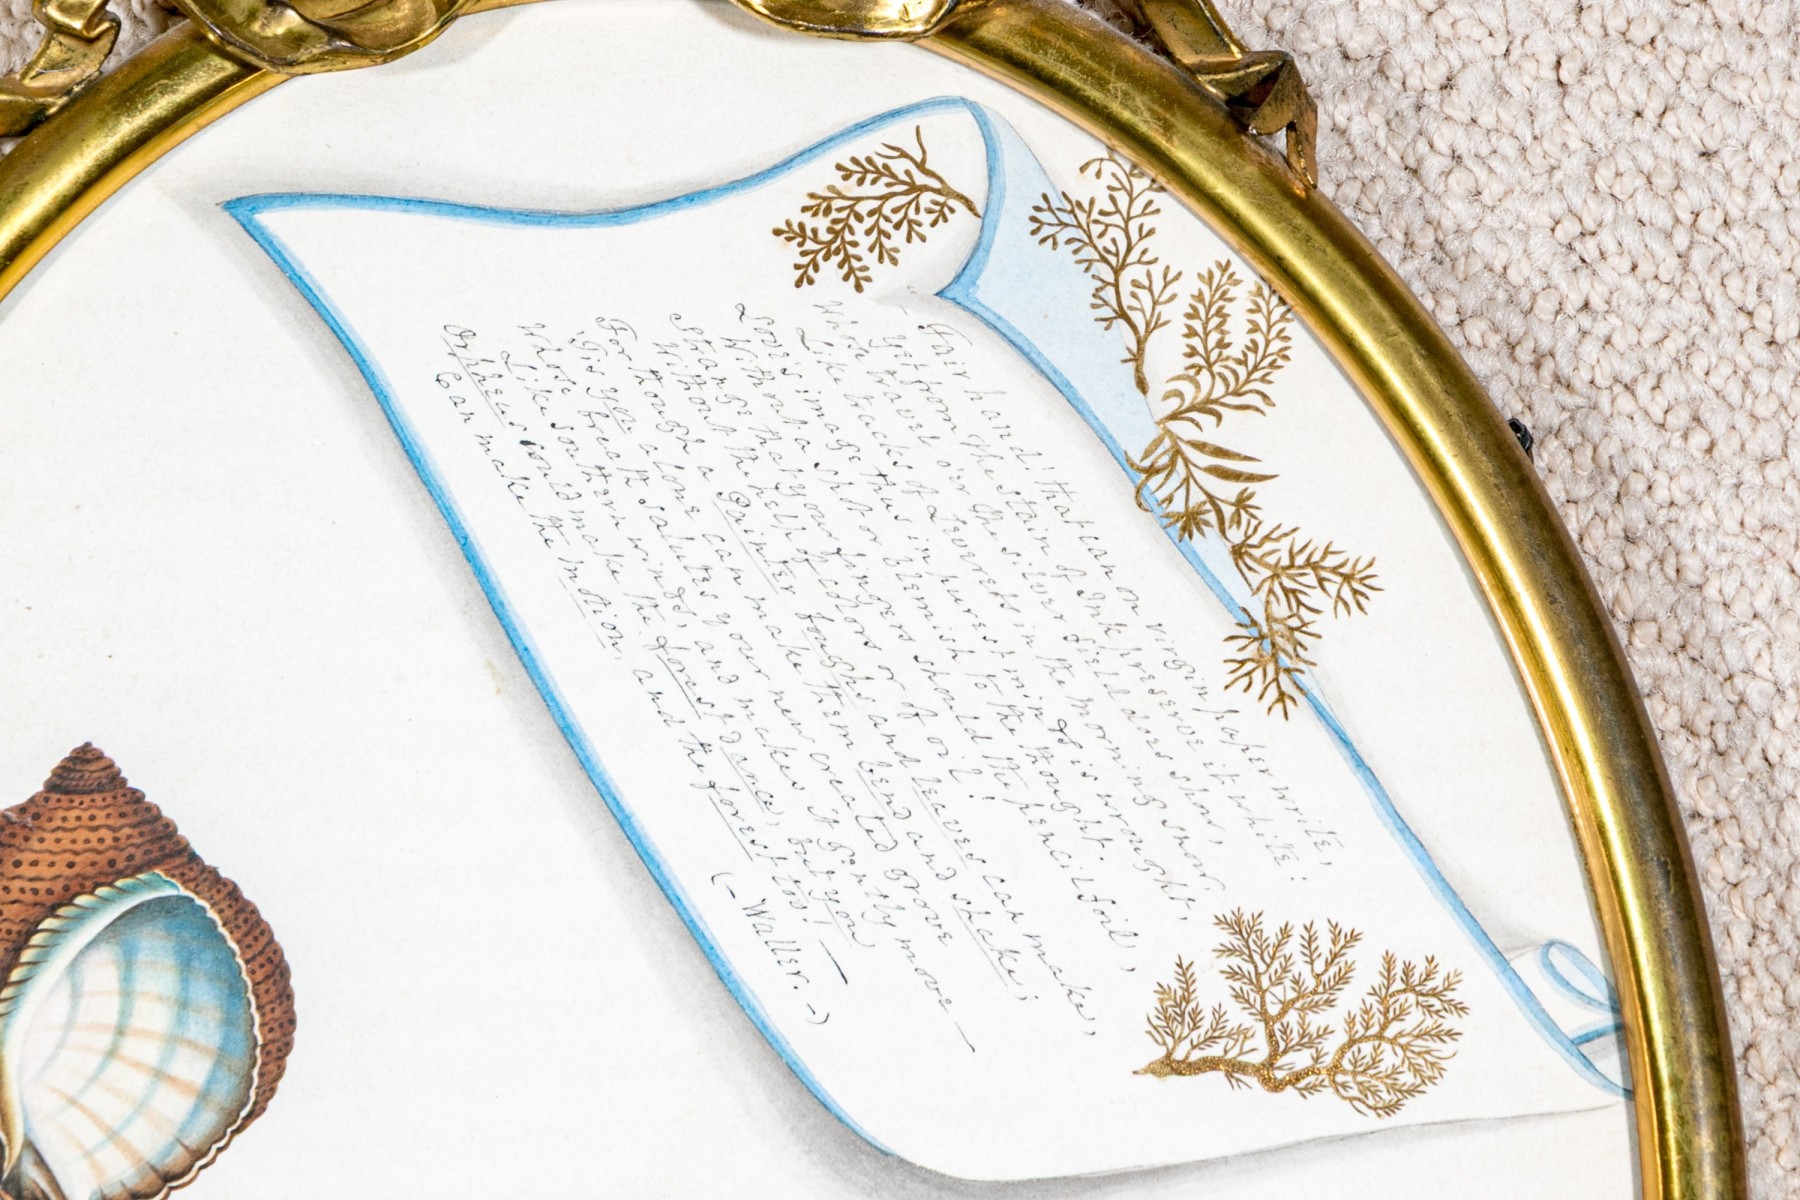 Fair hand! that can on virgin paper write,
Yet from the stain of Ink preserve it white:
Whose travel o'er the silver field does show,
Like tracks of Leverets in the morning snow.
Love's image thus in purest minds is wrought,
Without a spot or blemish to the thought.
Strange that your fingers should the pencil foil,
Without the help of colors or of oil!
For though a Painter boughs and leaves can make,
'Tis you alone can make them bend and shake;
Whose breath salutes your new created grove
Like southern winds, and makes it gently move —
Orpheus could make the forest dance, but you
Can make the motion, and the forest too! —
(— Waller. —)